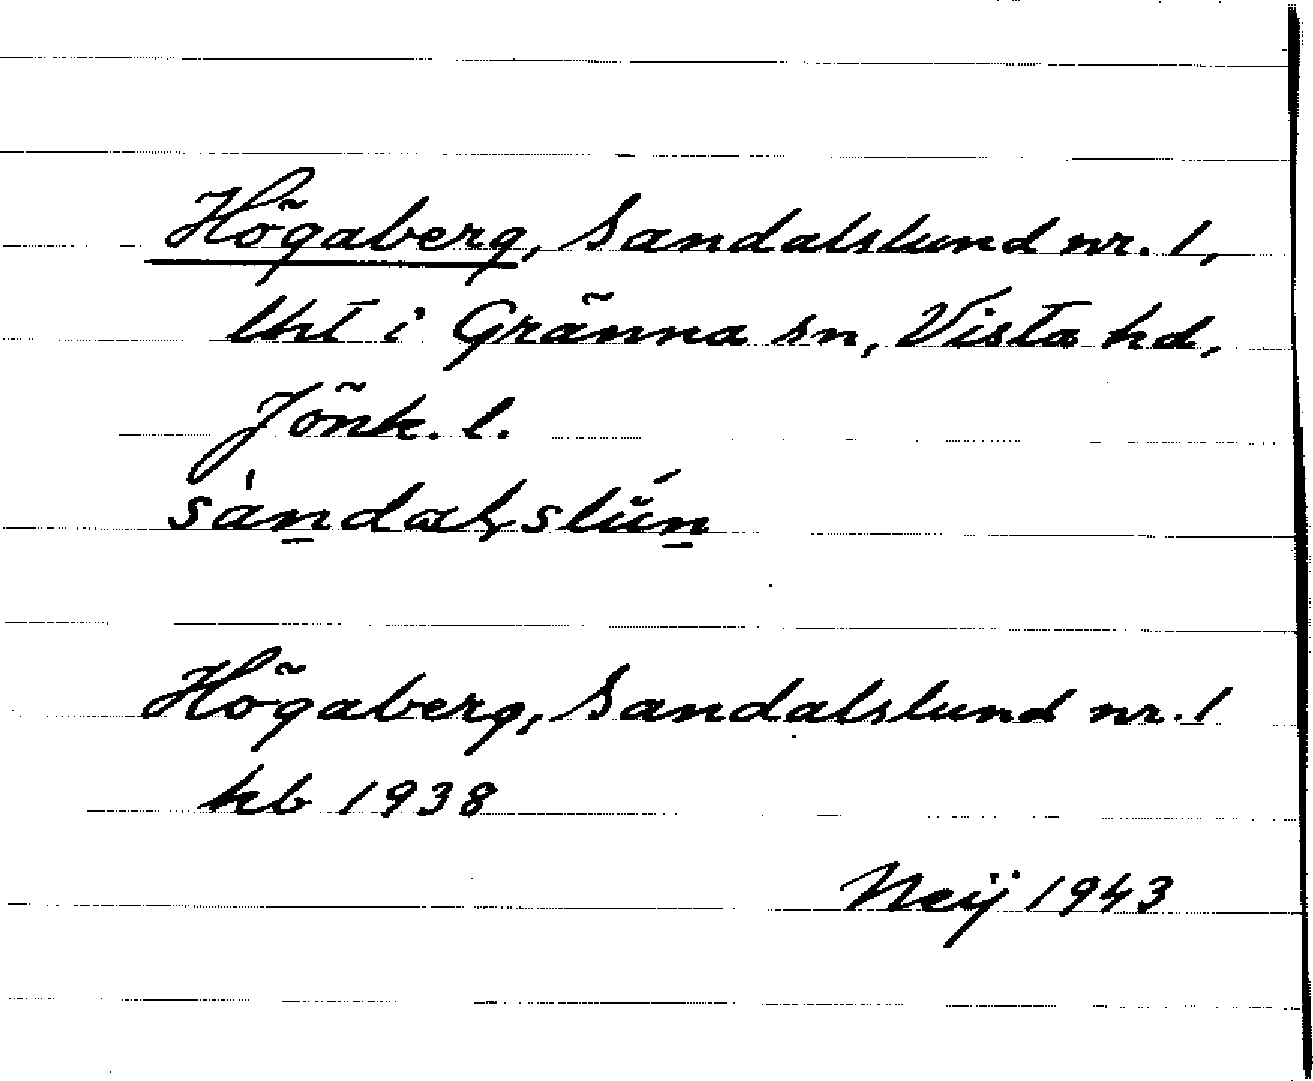 Högaberg, Sandalslund nr. 1,
lht i Gränna sn, Vista hd,
Jönk. l.
Högaberg, Sandalslund nr. 1
kb 1938
Neij 1943